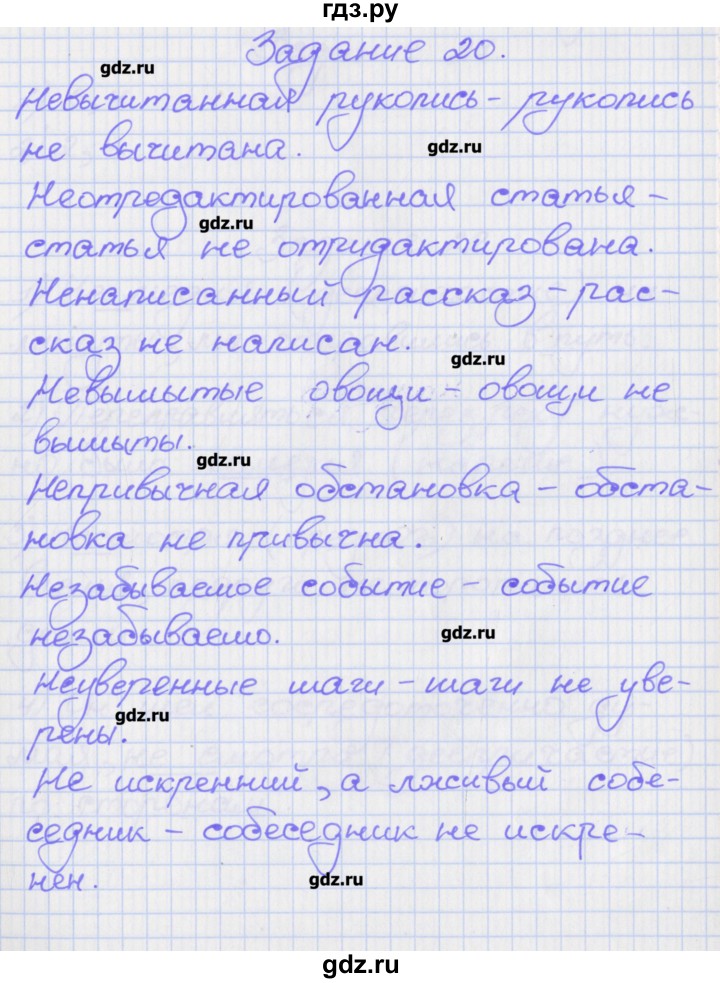 гдз.ру
Задание 20.
gdz.ru
Невычитанная рукопись - рукопись
не вычитана.
gdz.ru
Неотредактированная статья -
gdz.ru
статья не отридактирована.
Ненаписанный рассказ - рас-
сказ не написан.
gdz.ru
Невымытые овощи - овощи не
вымыты.
gdz.ru
Непривычная обстановка - обста-
новка не привычна.
Незабываемое событие - событие
незабываемо.
gdz.ru
Неуверенные шаги - шаги не уве-
gdz.ru
рены.
Не искренний, а лживый собе-
седник - собеседник не искре-
нен.
gdz.ru
gdz.ru